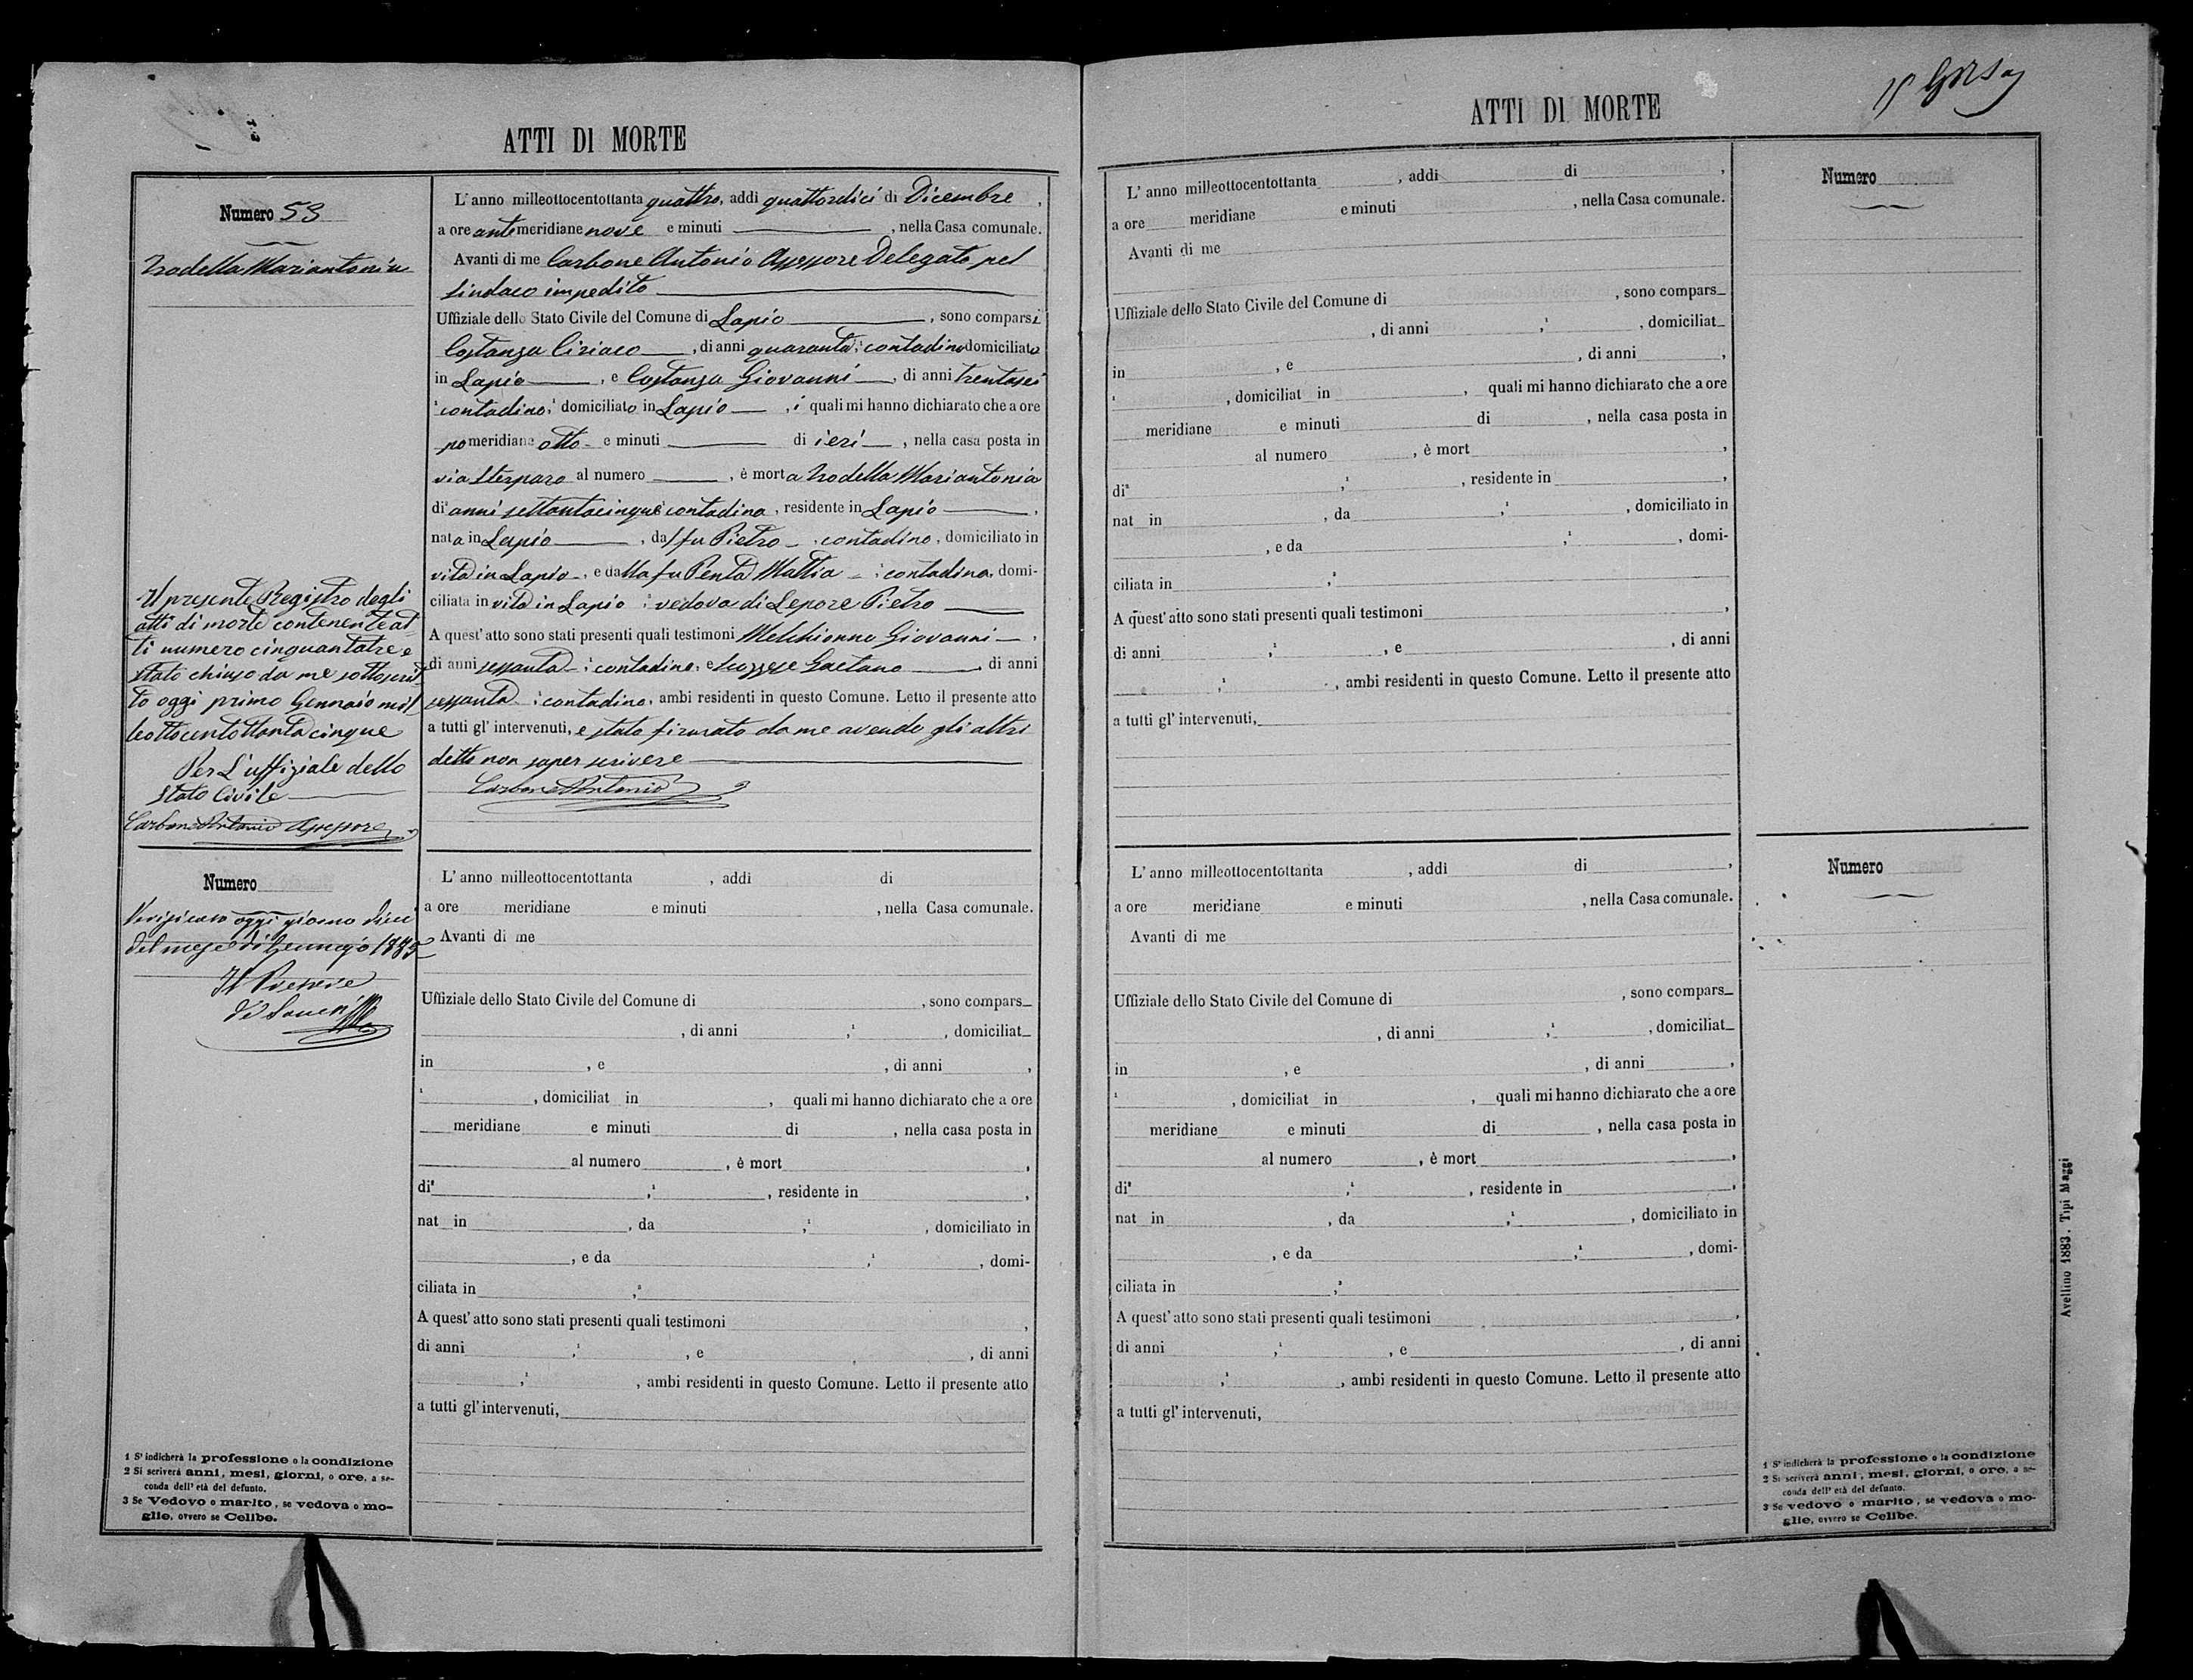 ATTI DI MORTE
Numero 53
Trodella Mariantonia
L'anno milleottocentottanta quattro, addì quattordici di Dicembre,
a ore anti meridiane nove e minuti ——, nella Casa comunale.
Avanti di me Carbone Antonio Assessore Delegato pel
Sindaco impedito ——
Uffiziale dello Stato Civile del Comune di Lapio ——, sono comparsi
Costanza Ciriaco ——, di anni quaranta, contadino domiciliato
in Lapio ——, e Costanza Giovanni ——, di anni trentasei
contadino, domiciliato in Lapio ——, i quali mi hanno dichiarato che a ore
po meridiane otto e minuti —— di ieri ——, nella casa posta in
via Sterparo al numero ——, è morta Trodella Mariantonia
di² anni settantacinque contadina, residente in Lapio ——,
nata in Lapio ——, dal fu Pietro —, contadino, domiciliato in
vita in Lapio —, e dalla fu Penta Mattia —, contadina, domi-
ciliata in vita in Lapio, vedova di Lepore Pietro ——
A quest'atto sono stati presenti quali testimoni Melchionno Giovanni —,
di anni sessanta —, contadino, e Gaetano ——, di anni
sessanta, contadino, ambi residenti in questo Comune. Letto il presente atto
a tutti gl'intervenuti, è stato firmato da me avendo gli altri
detto non saper scrivere ——
Carbone Antonio
Il presente Registro degli
atti di morte contenente at-
ti numero cinquantatre è
stato chiuso da me sottoscrit
to oggi primo Gennaio mil
leottocentottantacinque
Per L'uffiziale dello
Stato Civile ——
Carbone Antonio Assessore
Numero
Verificato oggi giorno dieci
del mese di Gennajo 1885
Il Pretore
L'anno milleottocentottanta , addì di
a ore meridiane e minuti , nella Casa comunale.
Avanti di me
Uffiziale dello Stato Civile del Comune di , sono compars_
, di anni ,¹ , domiciliat_
in , e , di anni ,
¹ , domiciliat in , quali mi hanno dichiarato che a ore
meridiane e minuti di , nella casa posta in
al numero , è mort ,
di² ,¹ , residente in ,
nat in , da ,¹ , domiciliato in
, e da ,¹ , domi-
ciliata in ,³
A quest'atto sono stati presenti quali testimoni ,
di anni ,¹ , e , di anni
,¹ , ambi residenti in questo Comune. Letto il presente atto
a tutti gl'intervenuti,
1 S'indicherà la professione o la condizione
2 Si scriverà anni, mesi, giorni, o ore, a se-
conda dell'età del defunto.
3 Se Vedovo o marito, se vedova o mo-
glie, ovvero se Celibe.
ATTI DI MORTE
L'anno milleottocentottanta , addì di ,
a ore meridiane e minuti , nella Casa comunale.
Avanti di me
Uffiziale dello Stato Civile del Comune di , sono compars_
, di anni ,¹ , domiciliat_
in , e , di anni ,
¹ , domiciliat in , quali mi hanno dichiarato che a ore
meridiane e minuti di , nella casa posta in
al numero , è mort ,
di² ,¹ , residente in ,
nat in , da ,¹ , domiciliato in
, e da ,¹ , domi-
ciliata in ,³
A quest'atto sono stati presenti quali testimoni ,
di anni ,¹ , e , di anni
,¹ , ambi residenti in questo Comune. Letto il presente atto
a tutti gl'intervenuti,
Numero
L'anno milleottocentottanta , addì di ,
a ore meridiane e minuti , nella Casa comunale.
Avanti di me
Uffiziale dello Stato Civile del Comune di , sono compars_
, di anni ,¹ , domiciliat_
in , e , di anni ,
¹ , domiciliat in , quali mi hanno dichiarato che a ore
meridiane e minuti di , nella casa posta in
al numero , è mort ,
di² ,¹ , residente in ,
nat in , da ,¹ , domiciliato in
, e da ,¹ , domi-
ciliata in ,³
A quest'atto sono stati presenti quali testimoni ,
di anni ,¹ , e , di anni
,¹ , ambi residenti in questo Comune. Letto il presente atto
a tutti gl'intervenuti,
Numero
1 S'indicherà la professione o la condizione
2 Si scriverà anni, mesi, giorni, o ore, a se-
conda dell'età del defunto.
3 Se vedovo o marito, se vedova o mo-
glie, ovvero se Celibe.
Avellino 1883. Tipi Maggi